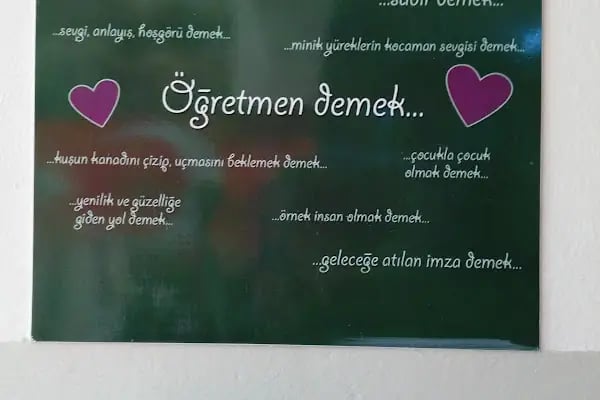 ...sabır demek...
...sevgi, anlayış, hoşgörü demek...
...minik yüreklerin kocaman sevgisi demek...
Öğretmen demek...
...kuşun kanadını çizip, uçmasını beklemek demek...
...çocukla çocuk
olmak demek...
...yenilik ve güzelliğe
giden yol demek...
...örnek insan olmak demek...
...geleceğe atılan imza demek...